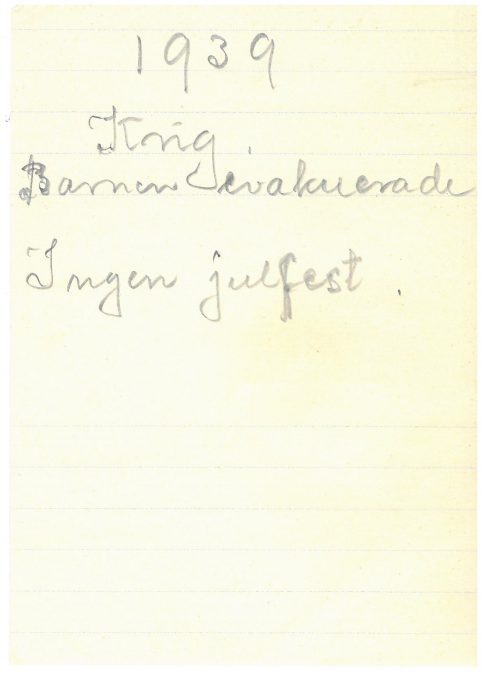 1939
Krig.
Barnen evakuerade
Ingen julfest.